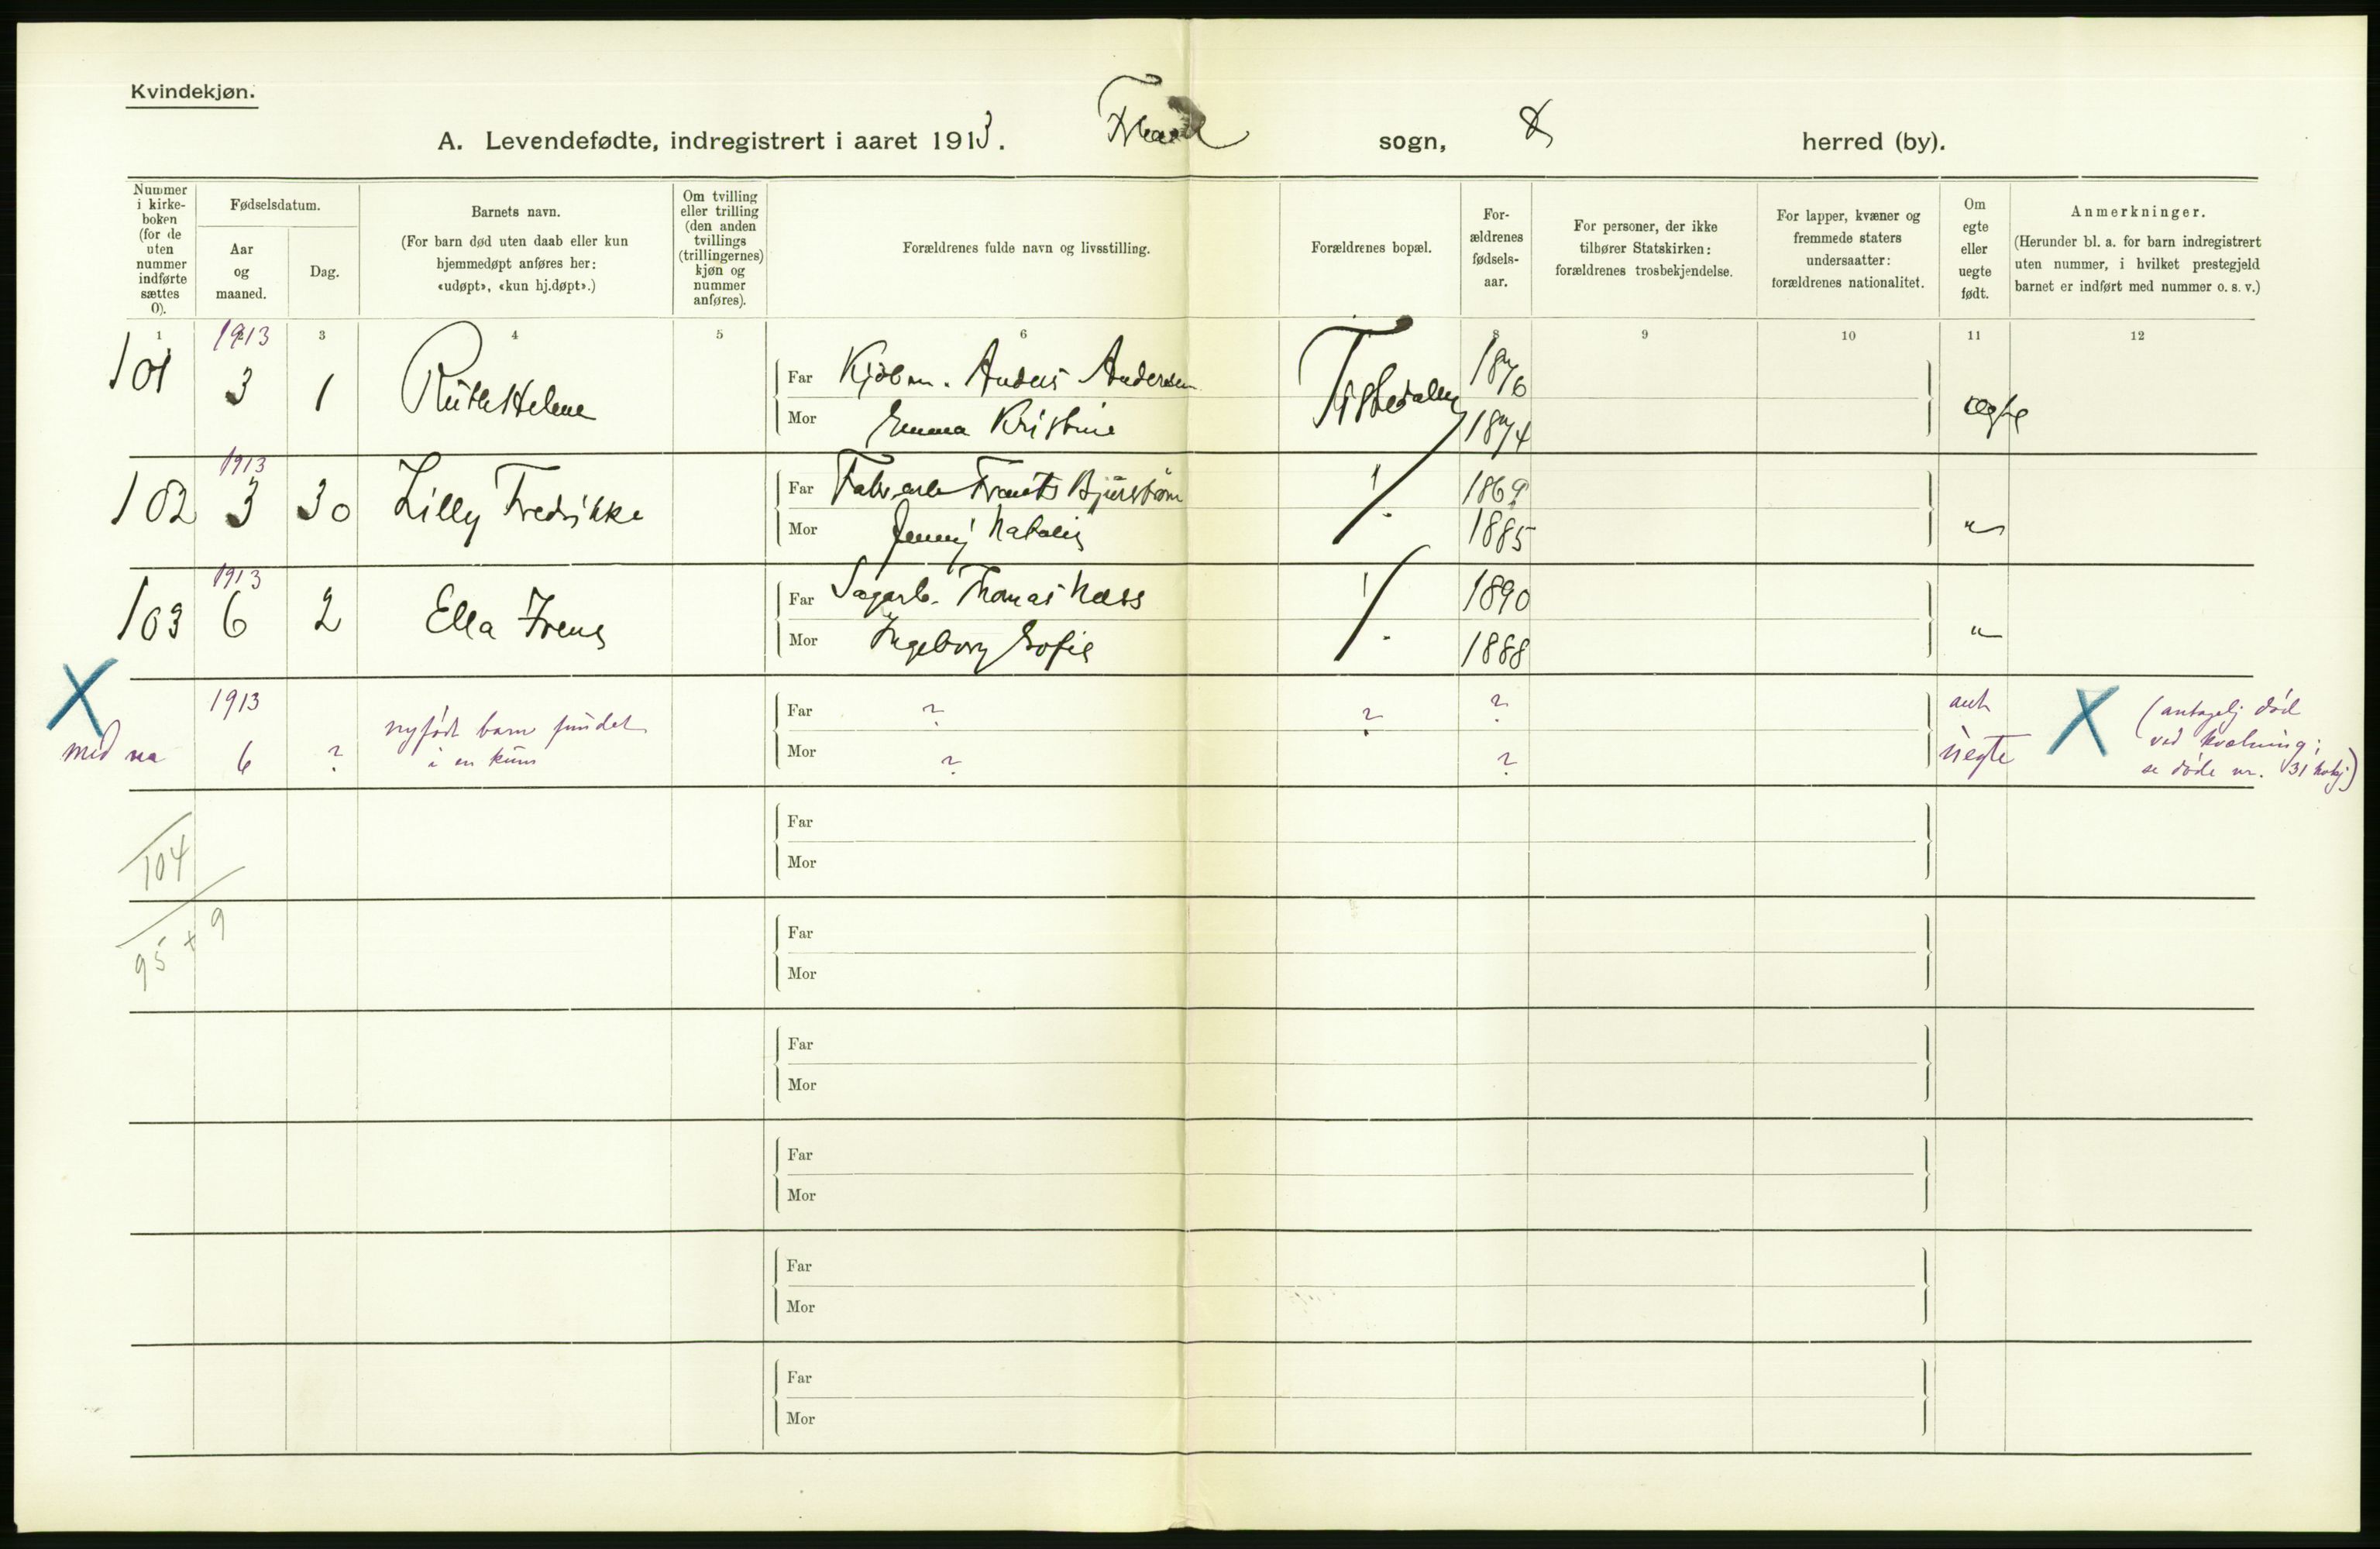 Kvindekjøn.
A. Levendefødte, indregistrert i aaret 1913. sogn, herred (by).
Nummer i kirke-boken (for de uten nummer indførte sættes 0).
Fødselsdatum.
Aar og maaned.
Dag.
Barnets navn.
(For barn død uten daab eller kun hjemmedøpt anføres her: «udøpt», «kun hj.døpt».)
Om tvilling eller trilling (den anden tvillings (trillingernes) kjøn og nummer anføres).
Forældrenes fulde navn og livsstilling.
Forældrenes bopæl.
For-ældrenes fødsels-aar.
For personer, der ikke tilhører Statskirken: forældrenes trosbekjendelse.
For lapper, kvæner og fremmede staters undersaatter: forældrenes nationalitet.
Om egte eller uegte født.
Anmerkninger.
(Herunder bl. a. for barn indregistrert uten nummer, i hvilket prestegjeld barnet er indført med nummer o. s. v.)
1 3 4 5 6 8 9 10 11 12
101 1913 3 1 Ruth Helene Far Kjöbm. Anders Andersen Tistedalen 1876 ægte
Mor Emma Kristine 1874
102 1913 3 30 Lilly Fredrikke Far Fabr.arb. Frants Bjurström 1869 "
Mor Jenny Natalie 1885
103 1913 6 2 Ella Irene Far Sagarb. Thomas Næss 1890 "
Mor Ingeborg Sofie 1888
X 1913 nyfödt barn fundet Far ? ? ? ant X (antagelig död
6 ? i en kum Mor ? ? uegte ved kvælning;
se döde nr. 31
Far
Mor
104
Far
Mor
95 + 9
Far
Mor
Far
Mor
Far
Mor
Far
Mor